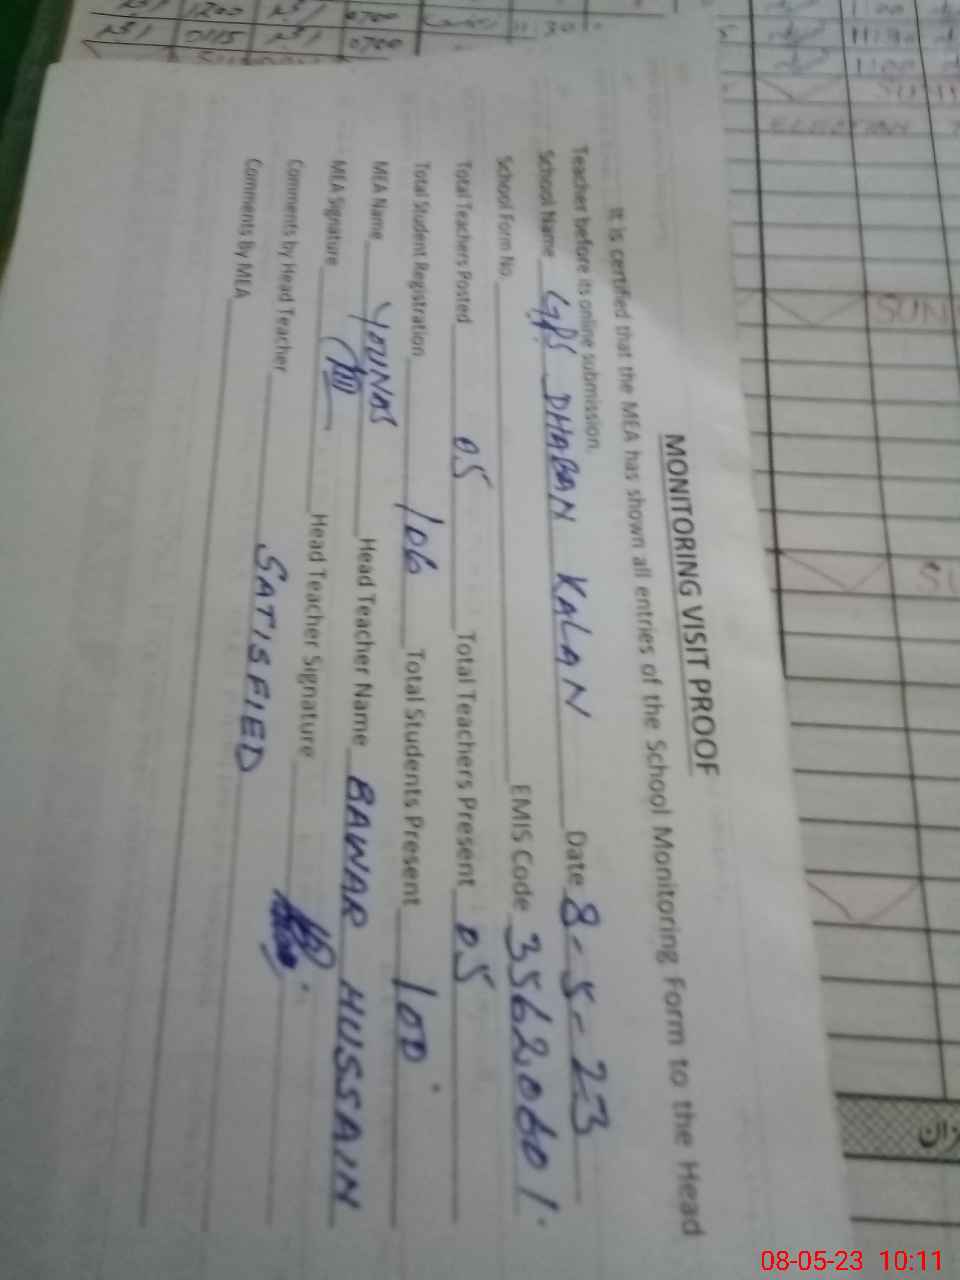 MONITORING VISIT PROOF
It is certified that the MEA has shown all entries of the School Monitoring Form to the Head
Teacher before its online submission.
School Name GPS DHABAN KALAN Date 8-5-23
School Form No. EMIS Code 35620601.
Total Teachers Posted 05 Total Teachers Present 05
Total Student Registration 106 Total Students Present 100
MEA Name YOUNAS Head Teacher Name BAWAR HUSSAIN
MEA Signature Head Teacher Signature
Comments by Head Teacher
Comments By MEA SATISFIED
1200 0700
0115 0700
1100
SUN
ELECTION
SUN
SU
08-05-23 10:11